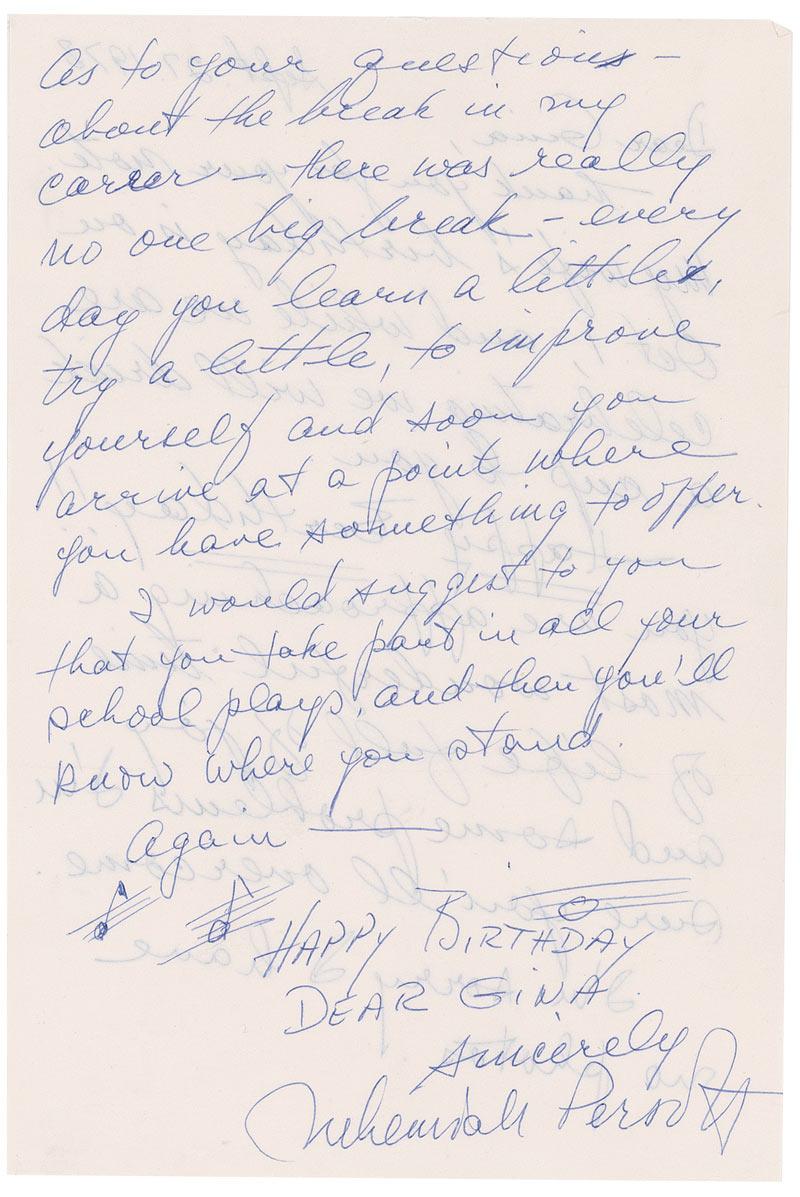 As to your questions –
about the break in my
career – there was really
no one big break – every
day you learn a little,
try a little, to improve
yourself and soon you
arrive at a point where
you have something to offer.
I would suggest to you
that you take part in all your
school plays, and then you'll
know where you stand.
Again —
HAPPY BIRTHDAY
DEAR GINA.
Sincerely
Nehemiah Persoff